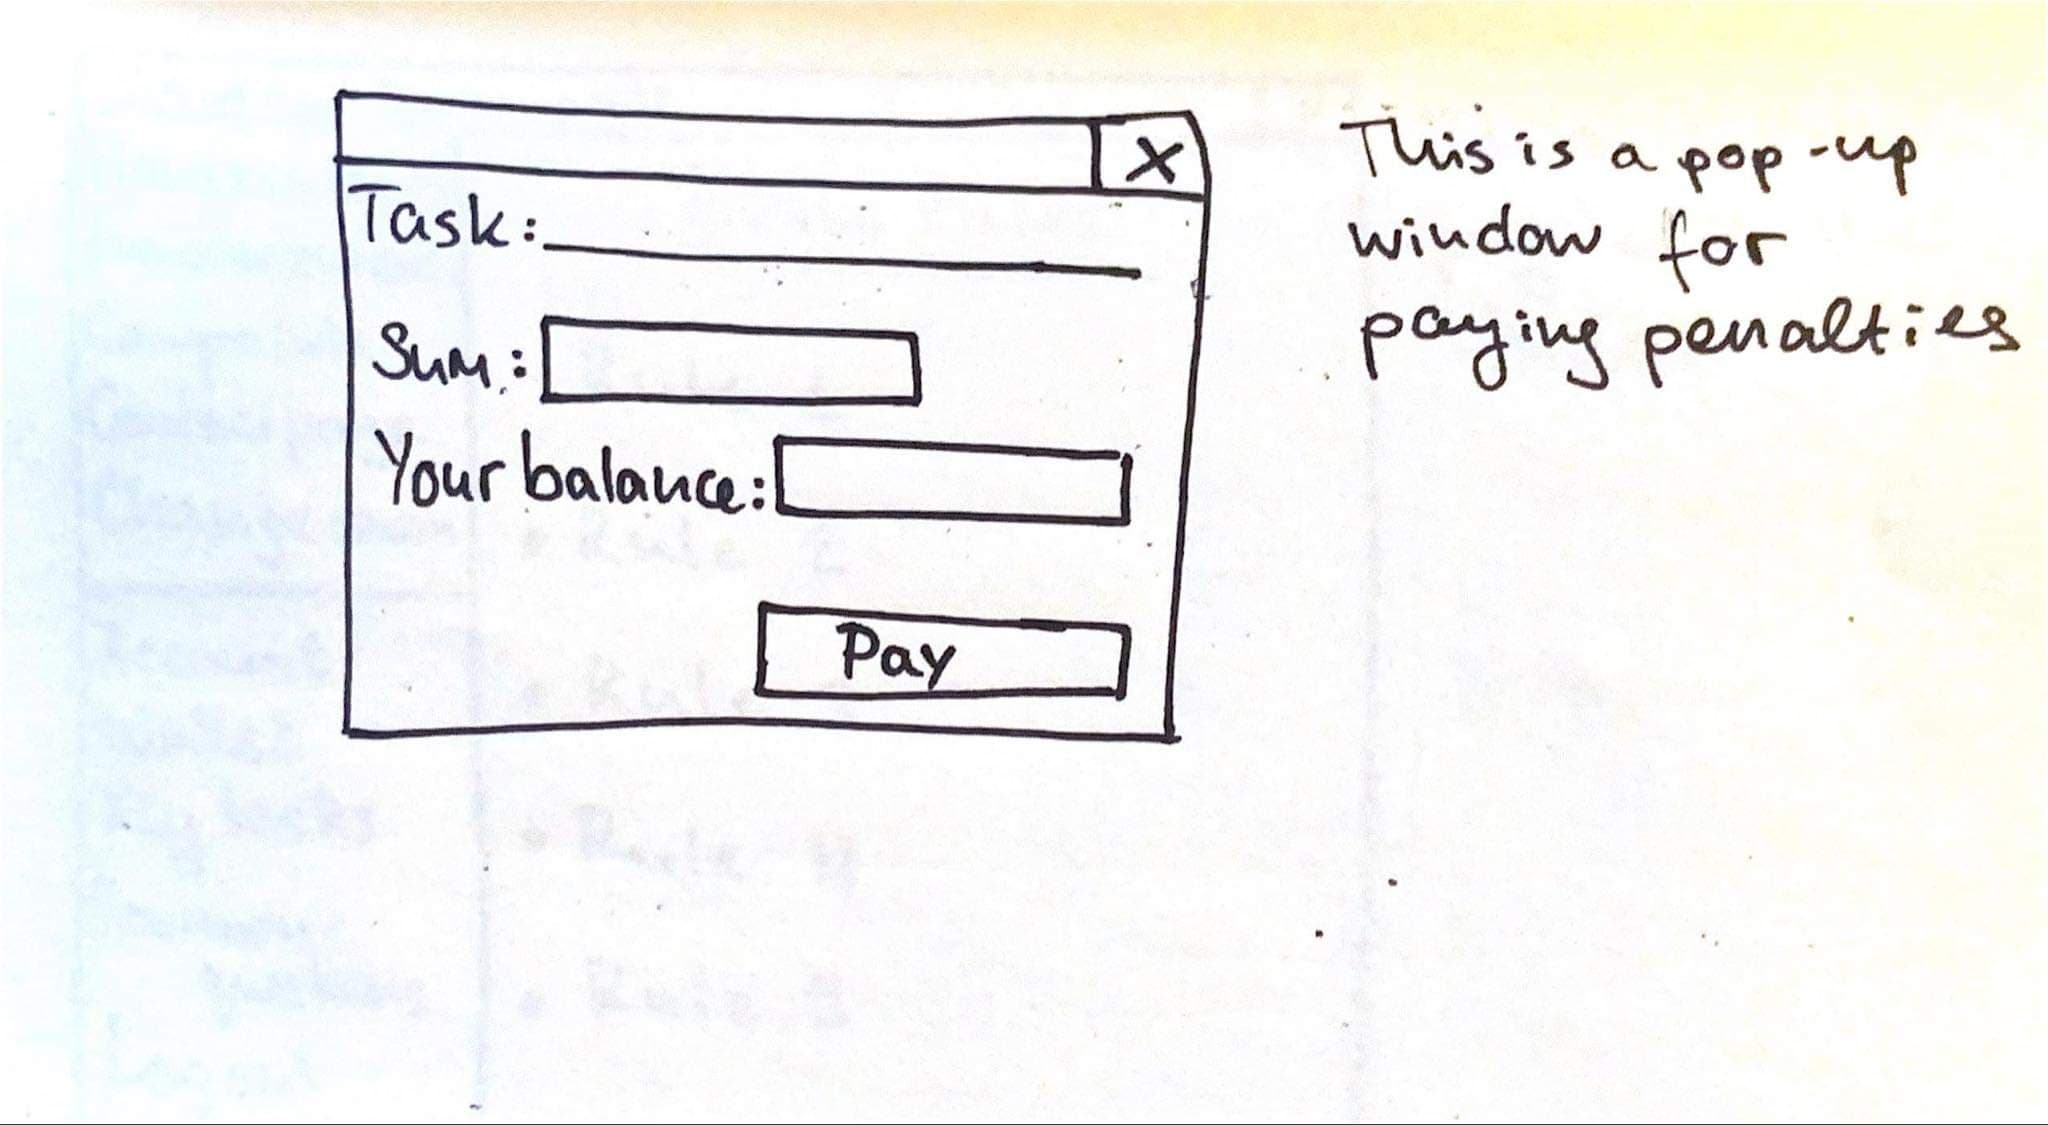 X
Task:
Sum:
Your balance:
Pay
This is a pop-up
window for
paying penalties